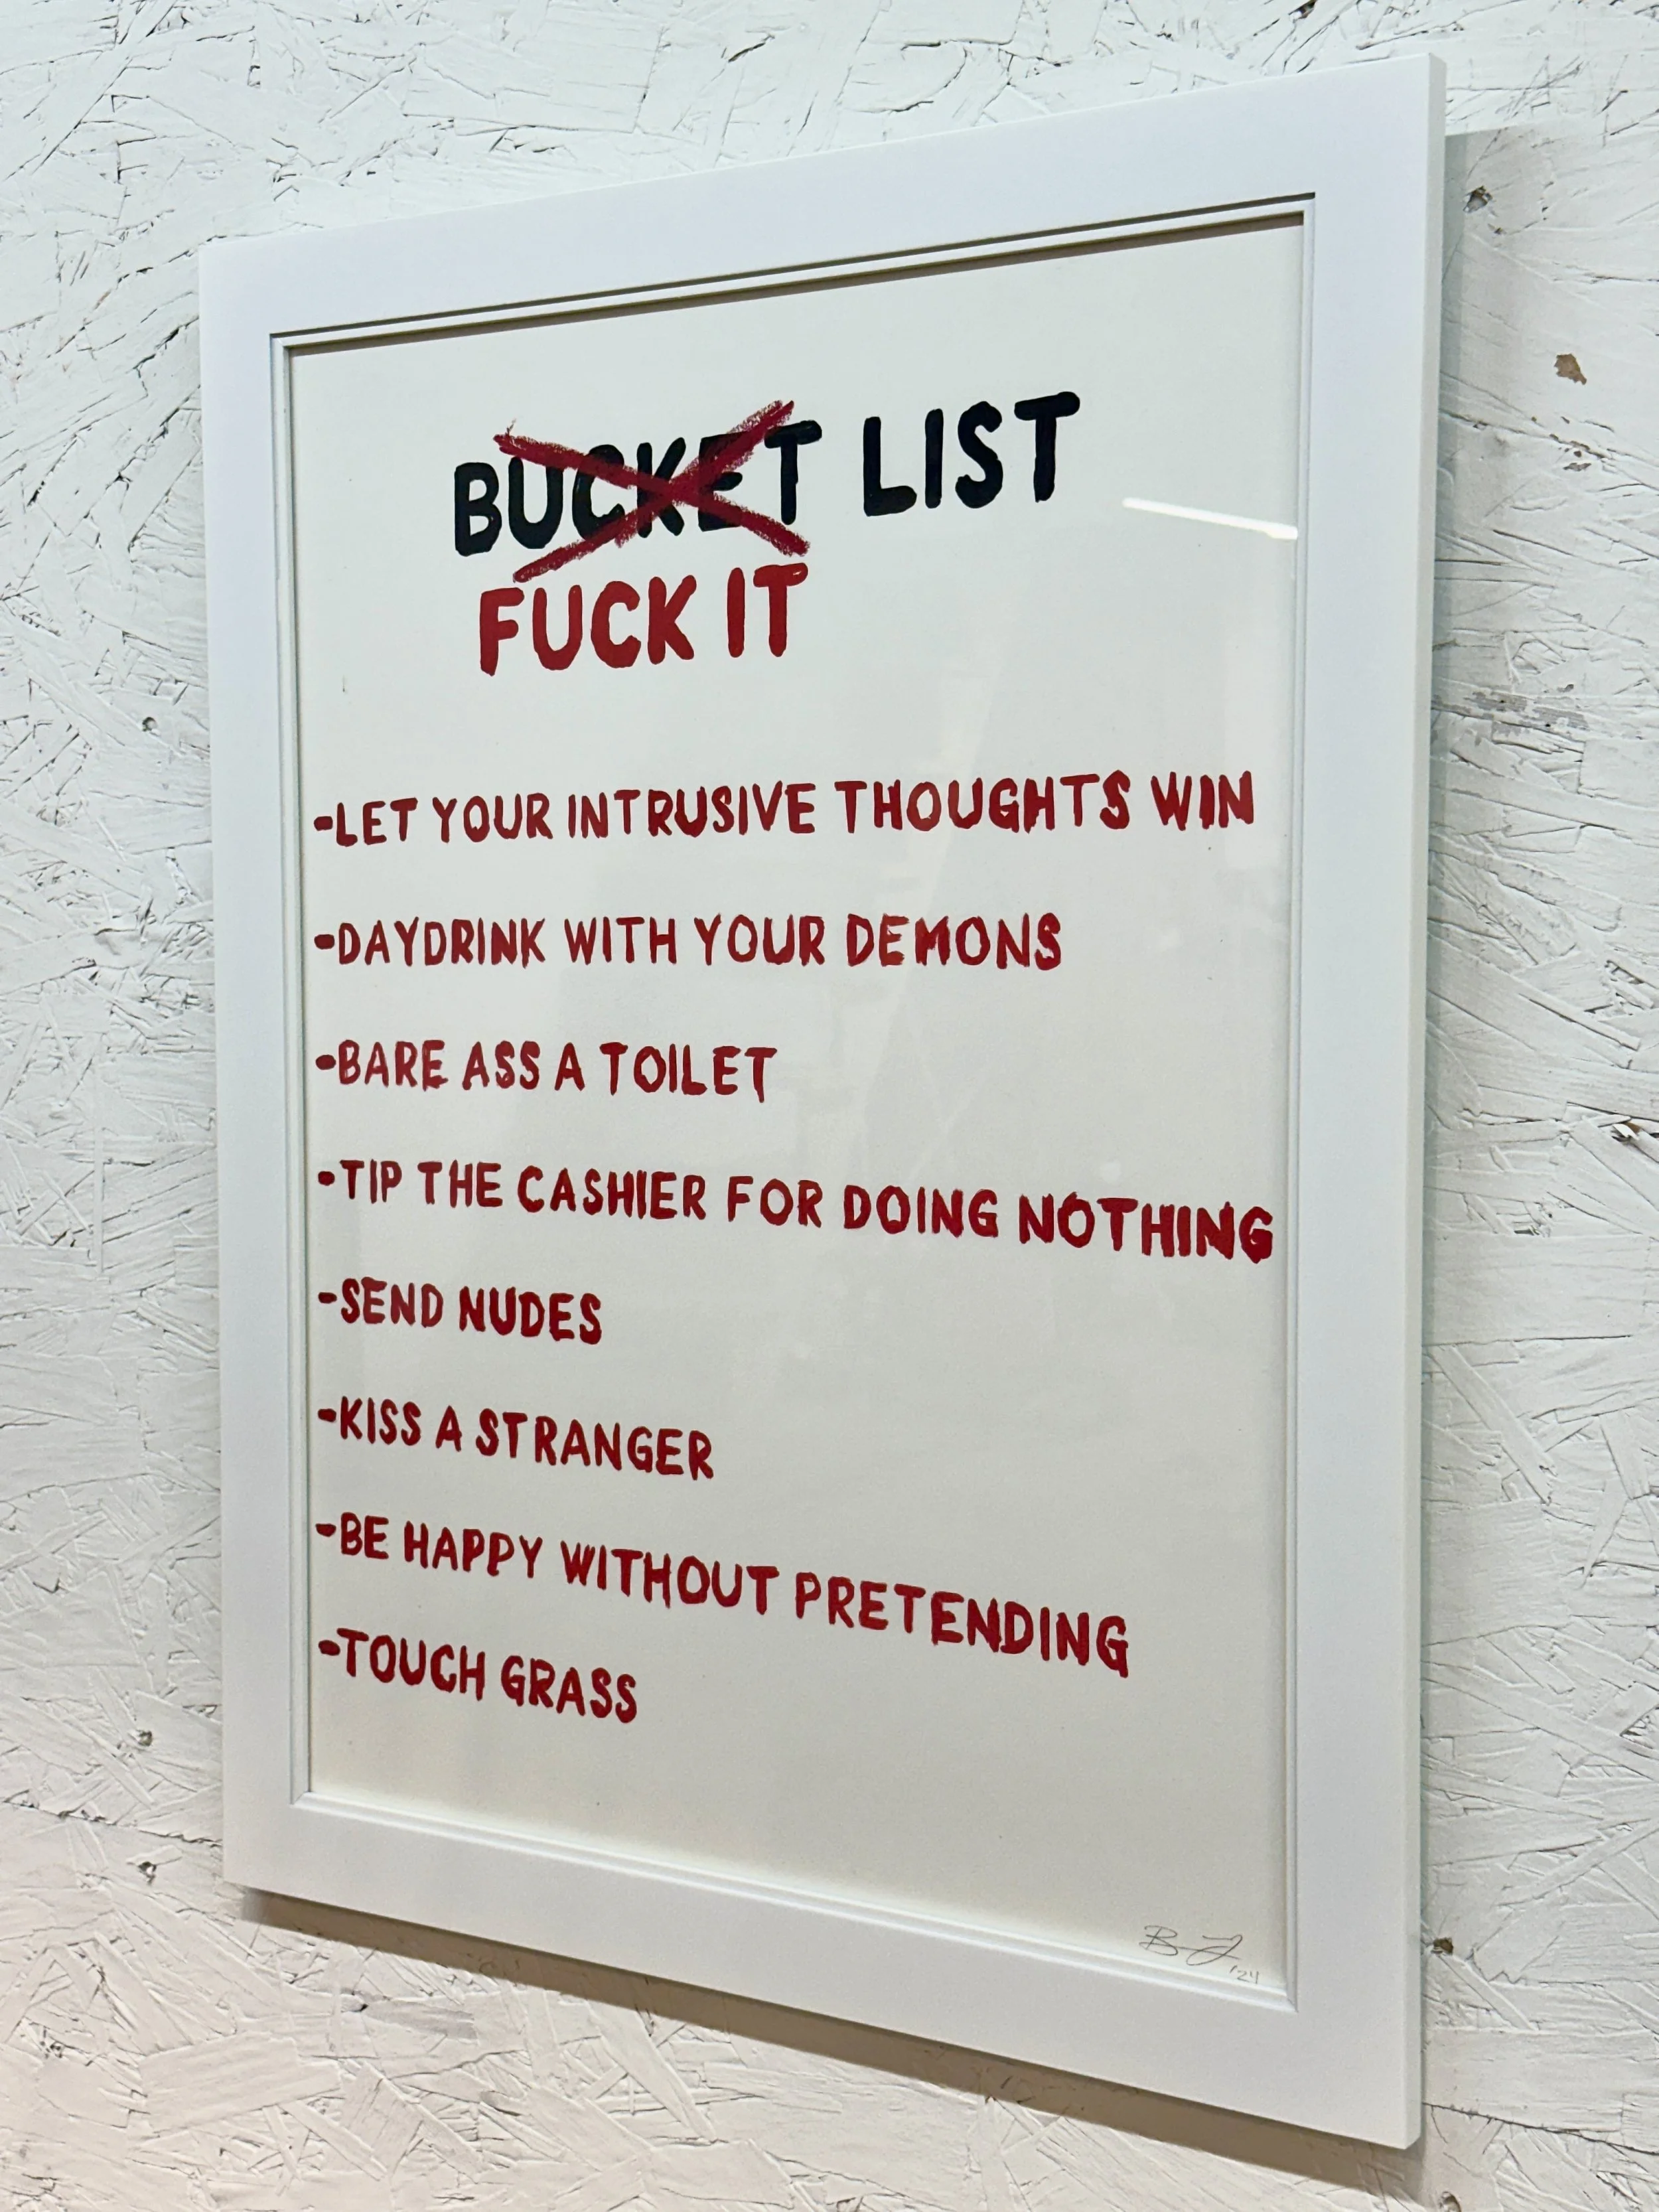 BUCKET LIST
FUCK IT
-LET YOUR INTRUSIVE THOUGHTS WIN
-DAYDRINK WITH YOUR DEMONS
-BARE ASS A TOILET
-TIP THE CASHIER FOR DOING NOTHING
-SEND NUDES
-KISS A STRANGER
-BE HAPPY WITHOUT PRETENDING
-TOUCH GRASS
'24